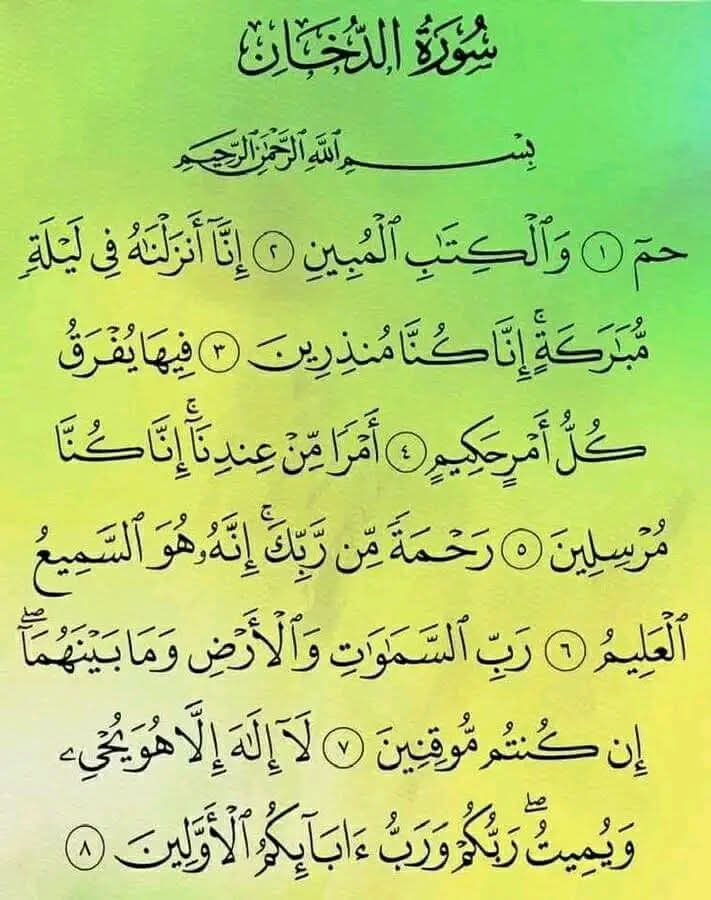 سُورَةُ الدُّخَانِ
بِسْمِ ٱللَّهِ ٱلرَّحْمَٰنِ ٱلرَّحِيمِ
حمٓ ١ وَٱلْكِتَٰبِ ٱلْمُبِينِ ٢ إِنَّآ أَنزَلْنَٰهُ فِى لَيْلَةٍ
مُّبَٰرَكَةٍ ۚ إِنَّا كُنَّا مُنذِرِينَ ٣ فِيهَا يُفْرَقُ
كُلُّ أَمْرٍ حَكِيمٍ ٤ أَمْرًا مِّنْ عِندِنَآ ۚ إِنَّا كُنَّا
مُرْسِلِينَ ٥ رَحْمَةً مِّن رَّبِّكَ ۚ إِنَّهُۥ هُوَ ٱلسَّمِيعُ
ٱلْعَلِيمُ ٦ رَبِّ ٱلسَّمَٰوَٰتِ وَٱلْأَرْضِ وَمَا بَيْنَهُمَآ ۖ
إِن كُنتُم مُّوقِنِينَ ٧ لَآ إِلَٰهَ إِلَّا هُوَ يُحْىِۦ
وَيُمِيتُ ۖ رَبُّكُمْ وَرَبُّ ءَابَآئِكُمُ ٱلْأَوَّلِينَ ٨